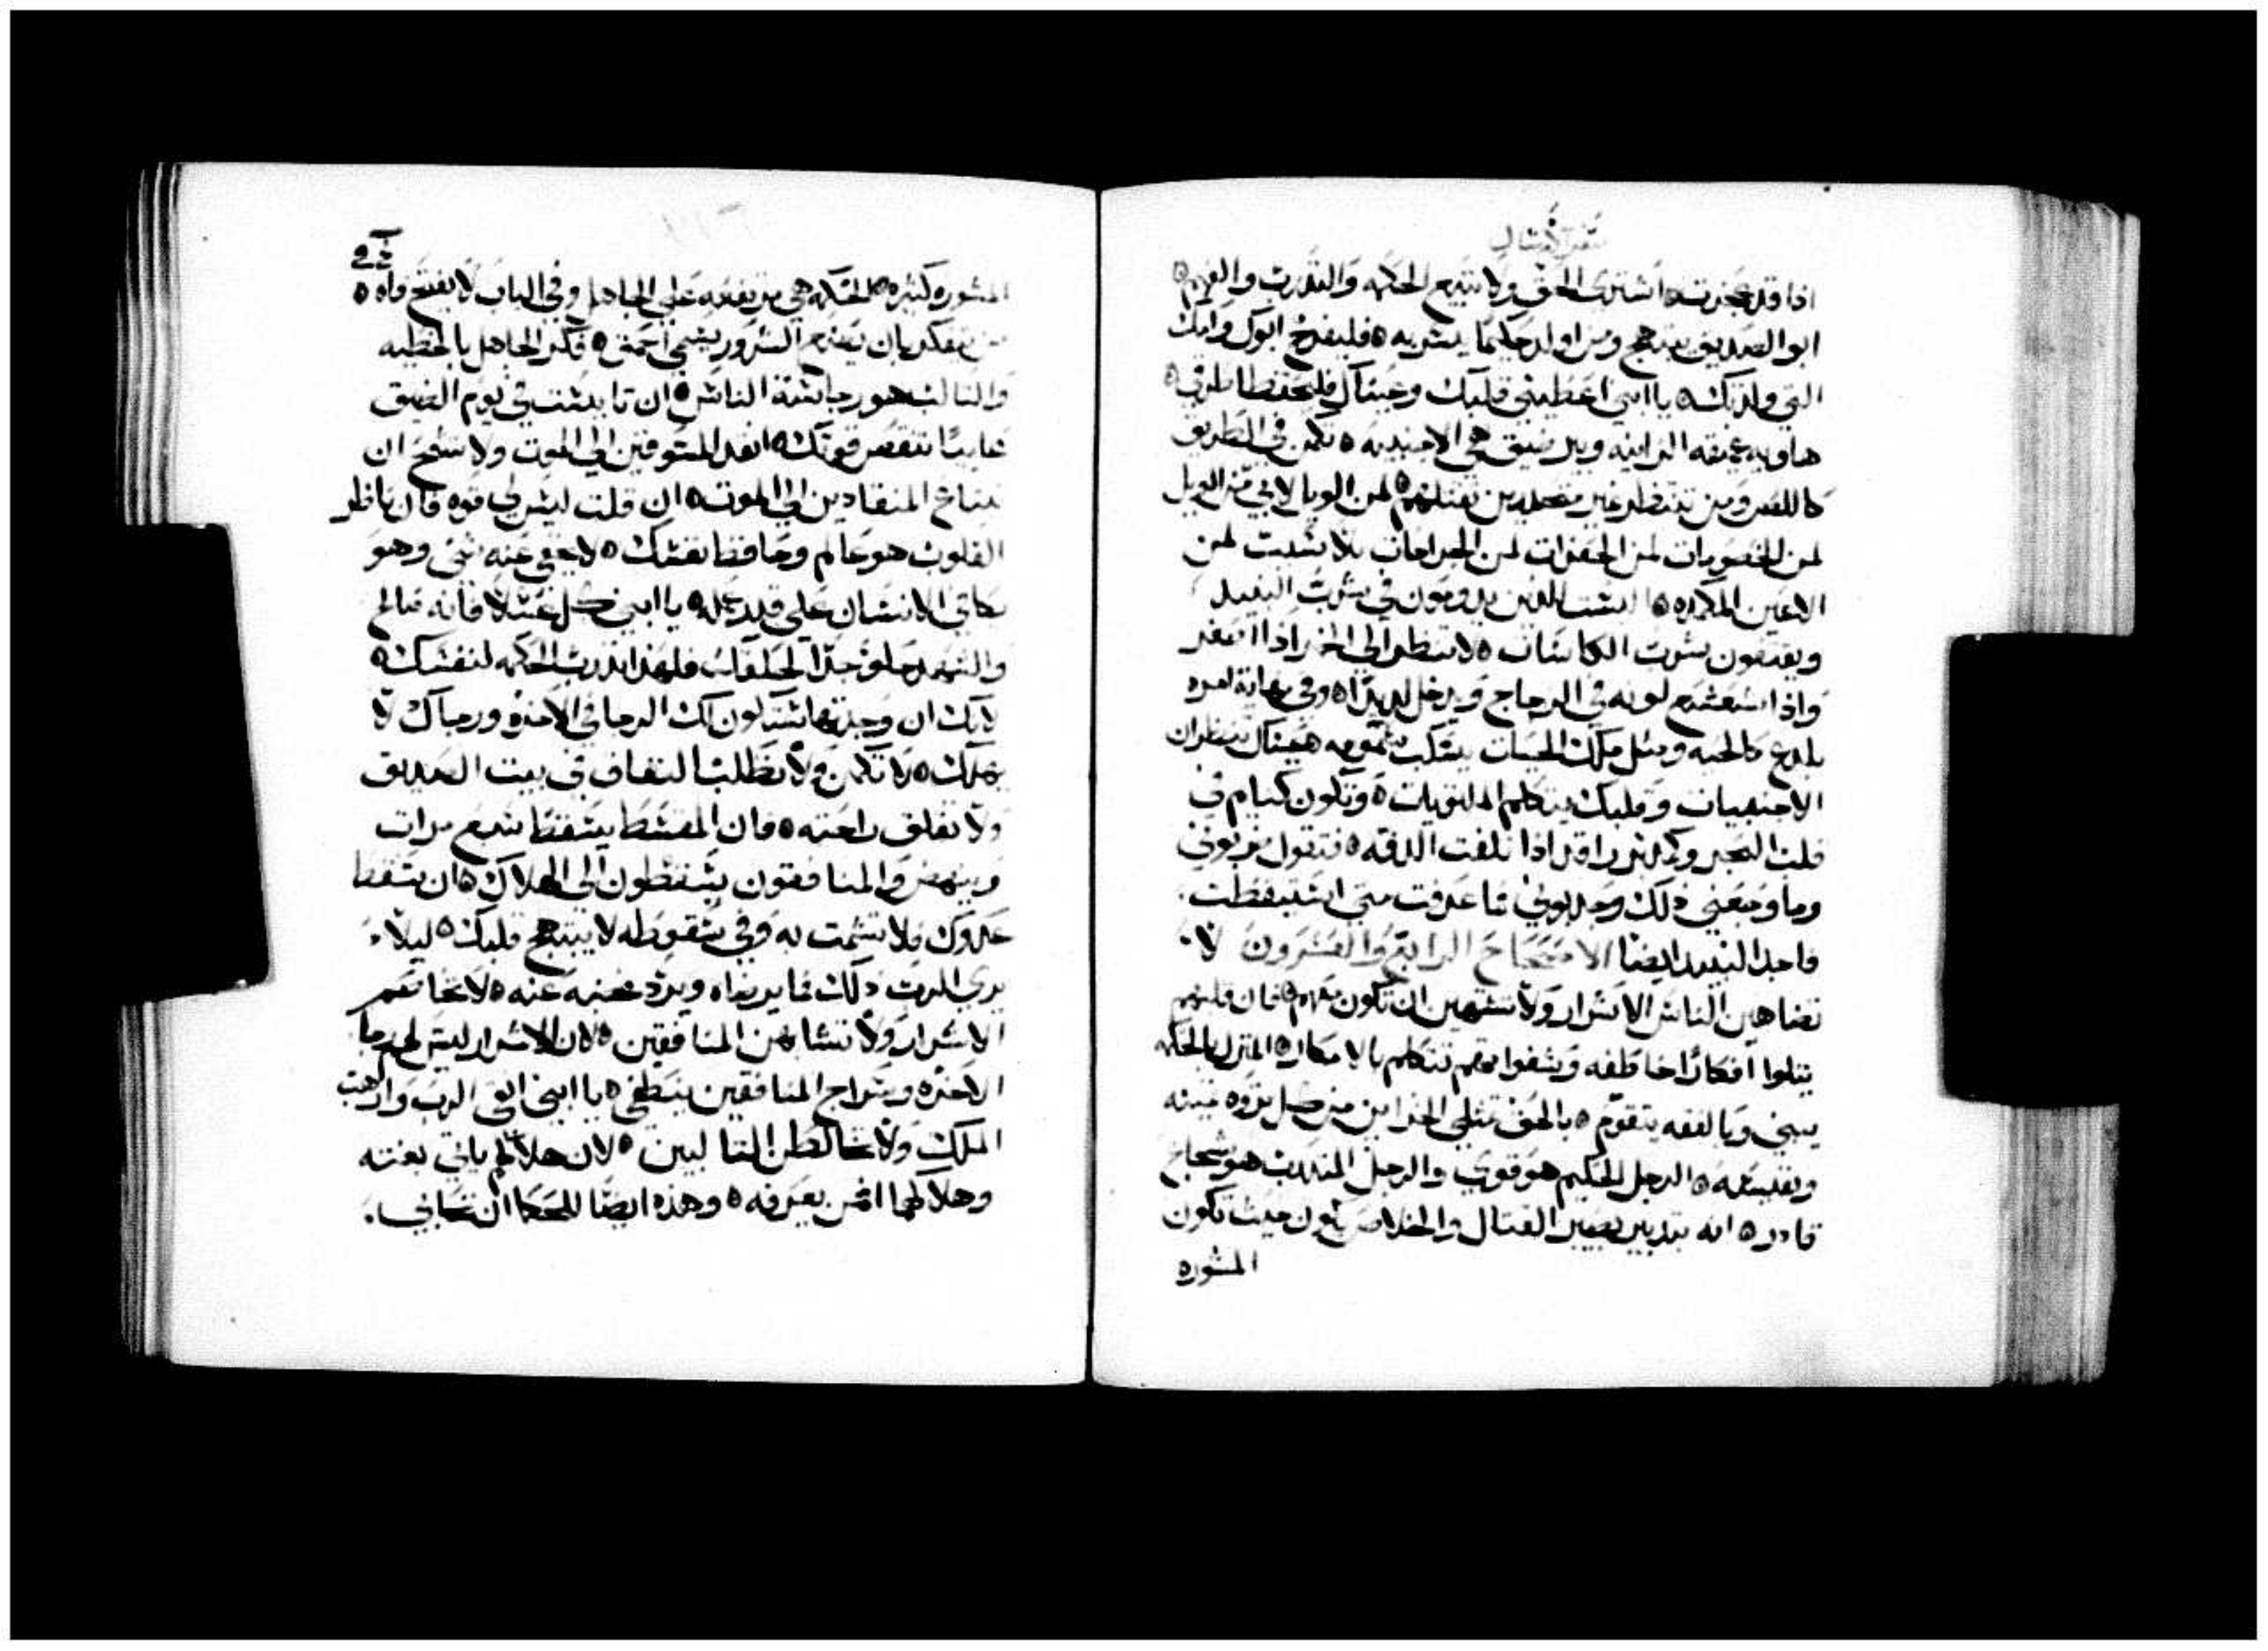 سفر الامثال
اذا قد عجزت ه اشتري الحق ولا تبيع الحكمه والتدرب والفهم ه
ابو الصديق يبتهج ومن اولد حكيما يسر به ه فليفرح ابوك وامك
التي ولدتك ه يا ابني اعطيني قلبك وعيناك فليحفظا طرقي ه
هاويه عميقه الزانيه وبير ضيق هي الاجنبيه ه تكمن في الطريق
كاللص ومن تنتظر غير متحدرين تقتلهم ه لمن الويل لابي من الويل
لمن الخصومات لمن الحفرات لمن الجراحات بلا سبب لمن
الاعين المكدره ه اليست للذين يدومون في شرب النبيد
ويعتنون بشرب الكاسات ه لا تنظر الى الخمر اذا اصفر
واذا شعشع لونه في الزجاج ويدخل لذيذا ه وفي نهايه امره
يلدغ كالحيه ومثل ملك الحيات يسكب سمومه ه عيناك تنظران
الاجنبيات وقلبك يتكلم الملتويات ه وتكون كنايم في
قلب البحر وكمدبر راقد اذا تلفت الدفه ه فتقول ضربوني
وما وجعني ذلك وجذبوني فما عرفت متى استيقظت
فاجد النبيد ايضا الاصحاح الرابع والعشرون لا
تضاهين الناس الاشرار ولا تشتهين ان تكون معهم ه فان قلبهم
يتلوا افكارا خاطفه وشفواتهم تتكلم بالامكار ه المنزل بالحكمه
يبنى وبالفقه يتقوم ه بالحق تمتلي الخزاين من كل ثروه ثمينه
ونفيسه ه الرجل الحكيم هو قوي والرجل المتدرب هو شجاع
قادر ه انه بتدبير يصير القتال والخلاص يكون حيث تكون
المشوره
المشوره كثيره ه الحكمه هي مرتفعه على الجاهل وفي الباب لا يفتح فاه ه
من يفكر بان يصنع الشرور يسمى احمق ه فكر الجاهل بالخطيه
والثالب هو رجاسة الناس ه ان تايست في يوم الضيق
خايبا تنقص قوتك ه انقد المسوقين الى الموت ولا تشح ان
تبتاع المنقادين الى الموت ه ان قلت ليس لي قوه فان ناظر
القلوب هو عالم وحافظ نفسك ه لا يخفي عنه شي وهو
يكافي الانسان على قدر عمله ه يا ابني كل عسلا فانه صالح
والشهد حلو جدا لحلقك فلهذا تدرب الحكمه لنفسك ه
لانك ان وجدتها ستكون لك الرجا في الاخره ورجاك لا
يهلك ه لا تكمن ولا تطلب النفاق في بيت الصديق
ولا تقلق راحته ه فان المقسط يسقط سبع مرات
وينهض والمنافقون يسقطون الى الهلاك ه ان سقط
عدوك فلا تشمت به وفي سقوطه لا يبتهج قلبك ه ليلا
يرى الرب ذلك فما يرضاه ويرد غضبه عنه ه لا تخاصم
الاشرار ولا تشابهن المنافقين ه لان الاشرار ليس لهم رجا
الاخره وسراج المنافقين ينطفي ه يا ابني اتق الرب وارهب
الملك ولا تخالطن الثالبين ه لان هلاكهم ياتي بغته
وهلاكهما من يعرفه ه وهذه ايضا للحكما ان تحابي